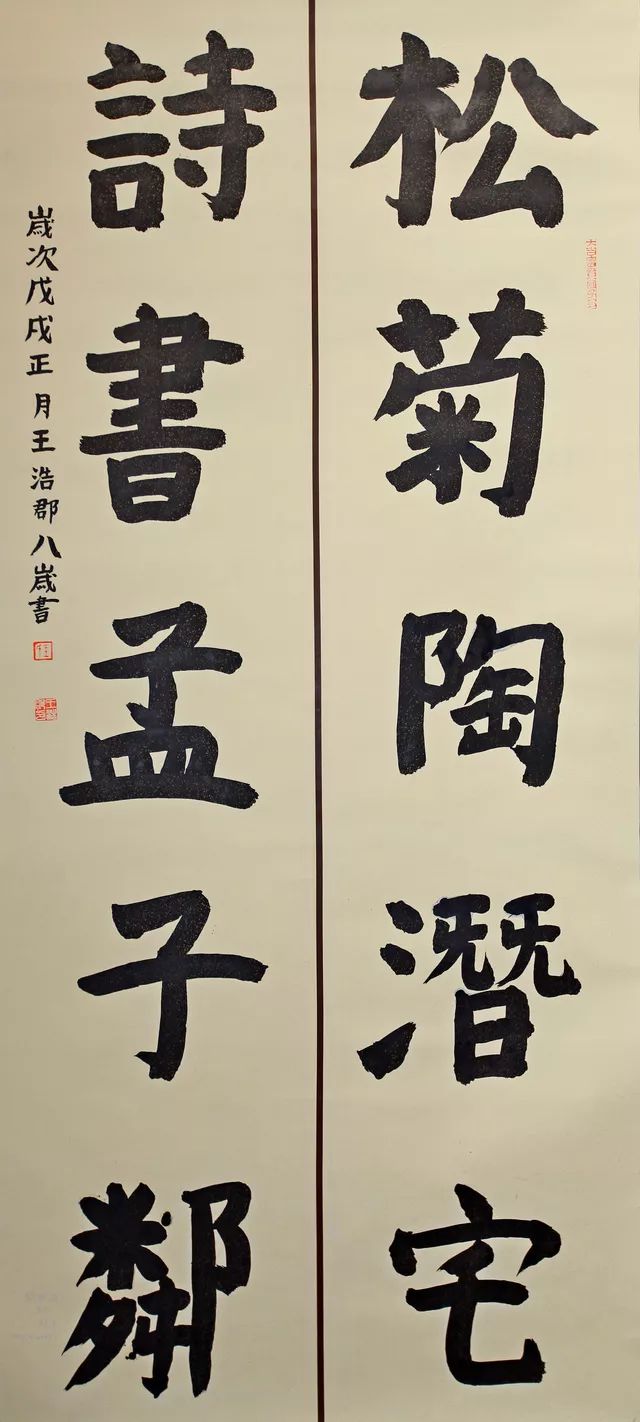 松菊陶潛宅
詩書孟子鄰
歲次戊戌正月王浩郡八歲書